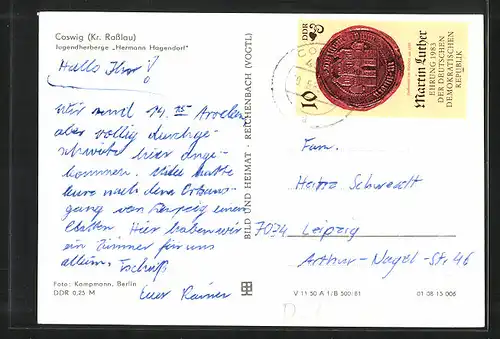 Coswig (Kr. Roßlau)
Jugendherberge „Hermann Hagendorf"
Hallo Ihr!
wir sind 14.15
aber völlig durchge-
schwitzt hier ange-
kommen. Udo hatte
kurz nach dem Ortsaus-
gang von Leipzig einen
Platten. Hier haben wir
ein Zimmer für uns
allein. Tschüß
Euer Rainer
Foto: Kampmann, Berlin
DDR 0,25 M
BILD UND HEIMAT · REICHENBACH (VOGTL)
V 11 50 A 1/B 500/81
01 08 15 006
DDR
10
Martin Luther
EHRUNG 1983
DER DEUTSCHEN
DEMOKRATISCHEN
REPUBLIK
Fam.
7034 Leipzig
Arthur-Nagel-Str. 46